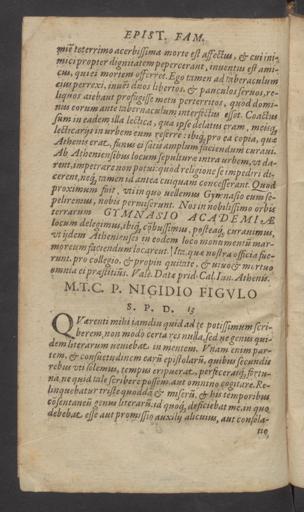 EPIST. FAM.
mē teterrimo acerbissima morte est affectus, & cui ini-
mici propter dignitatem pepercerant, inuentus est ami-
cus, qui ei mortem offerret. Ego tamen ad tabernaculum
eius perrexi, inueni duos libertos, & pauculos seruos, re-
liquos aiebant profugisse metu perterritos, quod domi-
nus eorum ante tabernaculum interfectus esset. Coactus
sum in eadem illa lectica, qua ipse delatus eram, meisq;
lecticarijs in urbem eum referre: ibiq; pro ea copia, quæ
Athenis erat, funus ei satis amplum faciendum curaui.
Ab Atheniensibus locum sepulturæ intra urbem, ut da-
rent, impetrare non potui: quod religione se impediri di-
cerent, neq; tamen id antea cuiquam concesserant. Quod
proximum fuit, uti in quo uellemus Gymnasio eum se-
peliremus, nobis permiserunt. Nos in nobilissimo orbis
terrarum GYMNASIO ACADEMIAE
locum delegimus, ibiq; cōbussimus, posteaq; curauimus,
ut ijdem Athenienses in eodem loco monumentū mar-
moreum faciendum locarent. Ita, quæ nostra officia fue-
runt, pro collegio, & propinquitate, & uiuo & mortuo
omnia ei præstitius. Vale. Data prid. Cal. Iun. Athenis.
M. T. C. P. NIGIDIO FIGVLO
S. P. D. 13
QVærenti mihi iamdiu quid ad te potissimum scri-
berem, non modo certa res nulla, sed ne genus qui-
dem literarum ueniebat in mentem. Vnam enim par-
tem, & consuetudinem earū epistolarū, quibus secundis
rebus uti solemus, tempus eripuerat, perficeratq; fortu-
na, ne quid tale scribere possem, aut omnino cogitare. Re-
linquebatur triste quoddā & miserū, & his temporibus
cōsentaneū genus literarū. id quoq; deficiebat me, in quo
debebat esse aut promissio auxilij alicuius, aut consola-
tio